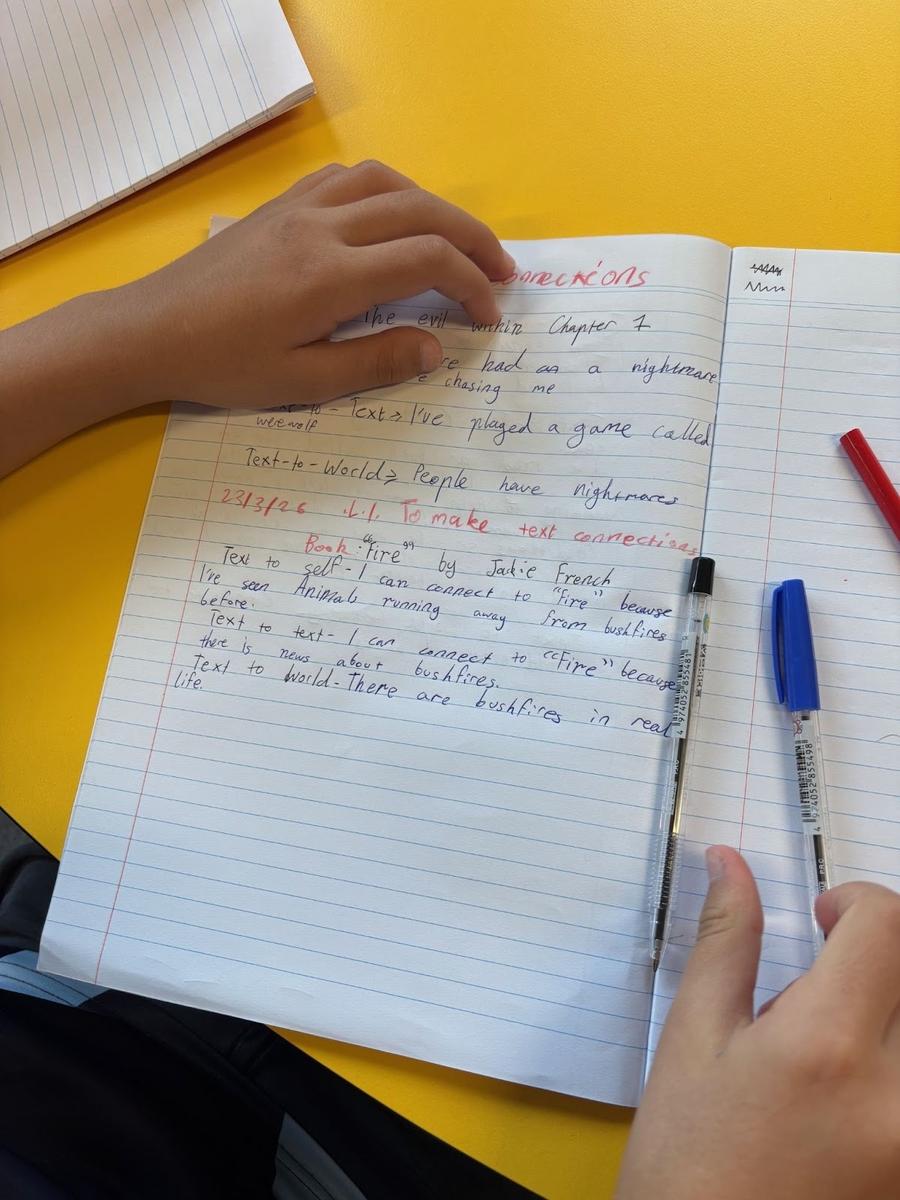 onnections
The evil within Chapter 1
had a nightmare
chasing me
Text > I've played a game called
werewolf
Text-to-World > People have nightmares
23/3/26 L.I. To make text connections
Book: "Fire" by Jackie French
Text to self - I can connect to "fire" because
I've seen Animals running away from bushfires
before.
Text to text - I can connect to "Fire" because
there is news about bushfires.
Text to World - There are bushfires in real
life.
4 974052 855481
4 974052 855498